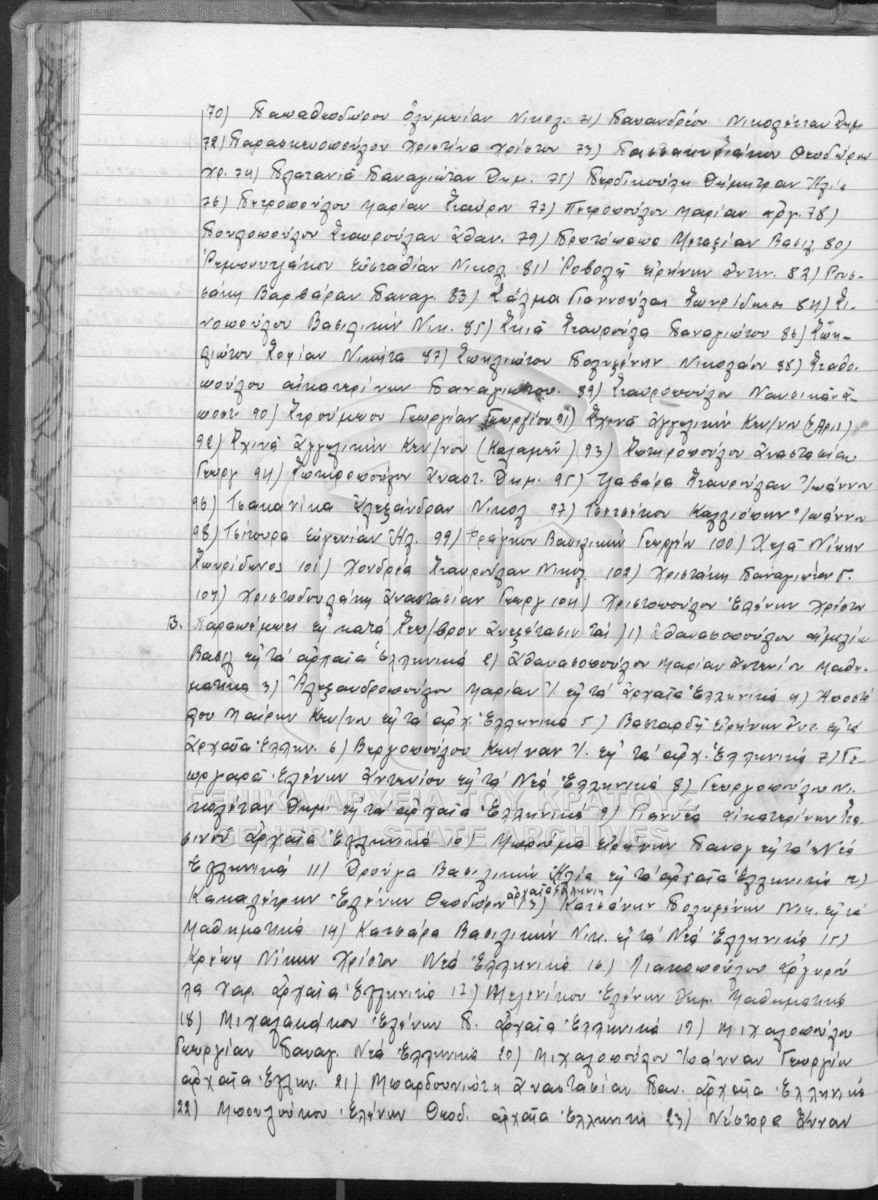 70) Παπαθεοδώρου Ὀλυμπίαν Νικολ. 71) Παπανδρέου Νικολέτταν Δημ
72) Παρασκευοπούλου Χριστίνα Χρίστου 73) Θεοδώραν
Χρ. 74) Πλατανιᾶ Παναγιώταν Δημ. 75) Περδικούλη Δήμητραν Ἠλία
76) Πετροπούλου Μαρίαν Σταύρου 77) Πετροπούλου Μαρίαν 78)
Πουλοπούλου Σταυρούλαν Ἀθαν. 79) Πρωτόπαπα Μεταξίαν Βασιλ 80)
Ρεμπουτζάκου Εὐσταθίαν Νικολ 81) Ροβολῆ Εἰρήνην Ἀντων. 82) Ρουσ-
σάκη Βαρβάραν Παναγ. 83) Σάλμα Γιαννούλαν Σπυρίδωνος 84) Σι-
νοπούλου Βασιλικήν Νικ. 85) Σκιᾶ Σταυρούλα Παναγιώτου 86) Σπη-
λιώτου Σοφίαν Νικήτα 87) Σπηλιώτου Πολυξένην Νικολάου 88) Σταθο-
πούλου Αἰκατερίνην Παναγιώτου. 89) Σταυροπούλου Ναυσικᾶν Ἀ-
ποστ 90) Στρούμπου Γεωργίαν Γεωργίου 91) Σχινᾶ Ἀγγελικήν Κων/νου
92) Σχινᾶ Ἀγγελικήν Κων/νου (Καλαμῶν) 93) Σωτηροπούλου Ἀναστασίαν
Γεωργ 94) Σωτηροπούλου Ἀναστ. Δημ. 95) Τζαβάρα Σταυρούλαν Ἰωάννου
96) Τσακανίκα Ἀλεξάνδραν Νικολ 97) Τσετσέκου Καλλιόπην Ἰωάννου
98) Τσίπουρα Εὐγενίαν Ἠλ. 99) Φράγκου Βασιλικήν Γεωργίου 100) Χελᾶ Νίκην
Σπυρίδωνος 101) Χονδρέα Σταυρούλαν Νικολ. 102) Χριστάκη Παναγιώταν Γ.
103) Χριστοδουλάκη Ἀναστασίαν Γεωργ 104) Χριστοπούλου Ἑλένην Χρίστου
Β. Παραπέμπει εἰς κατά Σεπ/βριον ἀνεξέτασιν τάς 1) Ἀθανασοπούλου Αἰμιλίαν
Βασιλ εἰς τά ἀρχαῖα Ἑλληνικά 2) Ἀθανασοπούλου Μαρίαν Ἀντωνίου Μαθη-
ματικά 3) Ἀλεξανδροπούλου Μαρίαν Ἰ. εἰς τά Ἀρχαῖα Ἑλληνικά 4) Ἀποστό-
λου Μαίρην Κων/νου εἰς τά ἀρχ. Ἑλληνικά 5) Βασταρδῆ Εἰρήνην Ἀντ. εἰς τά
Ἀρχαῖα Ἑλλην. 6) Βεργοπούλου Κων/ναν Ἰ. εἰς τά ἀρχ. Ἑλληνικά 7) Γε-
ωργαρᾶ Ἑλένην Ἀντωνίου εἰς τά Νέα Ἑλληνικά 8) Γεωργοπούλου Νι-
κολέταν Δημ. εἰς τά ἀρχαῖα Ἑλληνικά 9) Γιαννέα Αἰκατερίνην
Ἀρχαῖα Ἑλληνικά 10) Εἰρήνην Παναγ εἰς τά Νέα
Ἑλληνικά 11) Δρούγα Βασιλικήν Ἠλία εἰς τά ἀρχαῖα Ἑλληνικά 12)
Κακαλέτρη Ἑλένην Θεοδώρου ἀρχαῖα Ἑλληνικ 13) Κατσάνην Πολυξένην Νικ. εἰς τά
Μαθηματικά 14) Κατσάρα Βασιλικήν Νικ. εἰς τά Νέα Ἑλληνικά 15)
Νίκην Χρίστου Νέα Ἑλληνικά 16) Λιακοπούλου Ἀργυρού-
λα Χαρ. ἀρχαῖα Ἑλληνικά 17) Μελενίκου Ἑλένην Δημ. Μαθηματικά
18) Μιχαλακάκου Ἑλένην Π. ἀρχαῖα Ἑλληνικά 19) Μιχαλοπούλου
Γεωργίαν Παναγ. Νέα Ἑλληνικά 20) Μιχαλοπούλου Ἰωάνναν Γεωργίου
ἀρχαῖα Ἑλλην. 21) Μπαρδουνιώτη Ἀναστασίαν Παν. ἀρχαῖα Ἑλληνικά
22) Μπουλούκου Ἑλένην Θεοδ. ἀρχαῖα Ἑλληνικά 23) Νέστορα Ἄνναν
ΓΕΝΙΚΑ ΑΡΧΕΙΑ ΤΟΥ ΚΡΑΤΟΥΣ
GENERAL STATE ARCHIVES